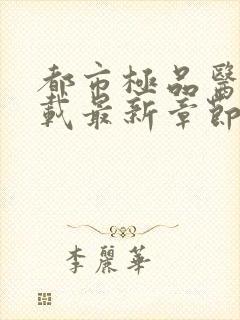 都市極品醫
載最新章節
李麗華